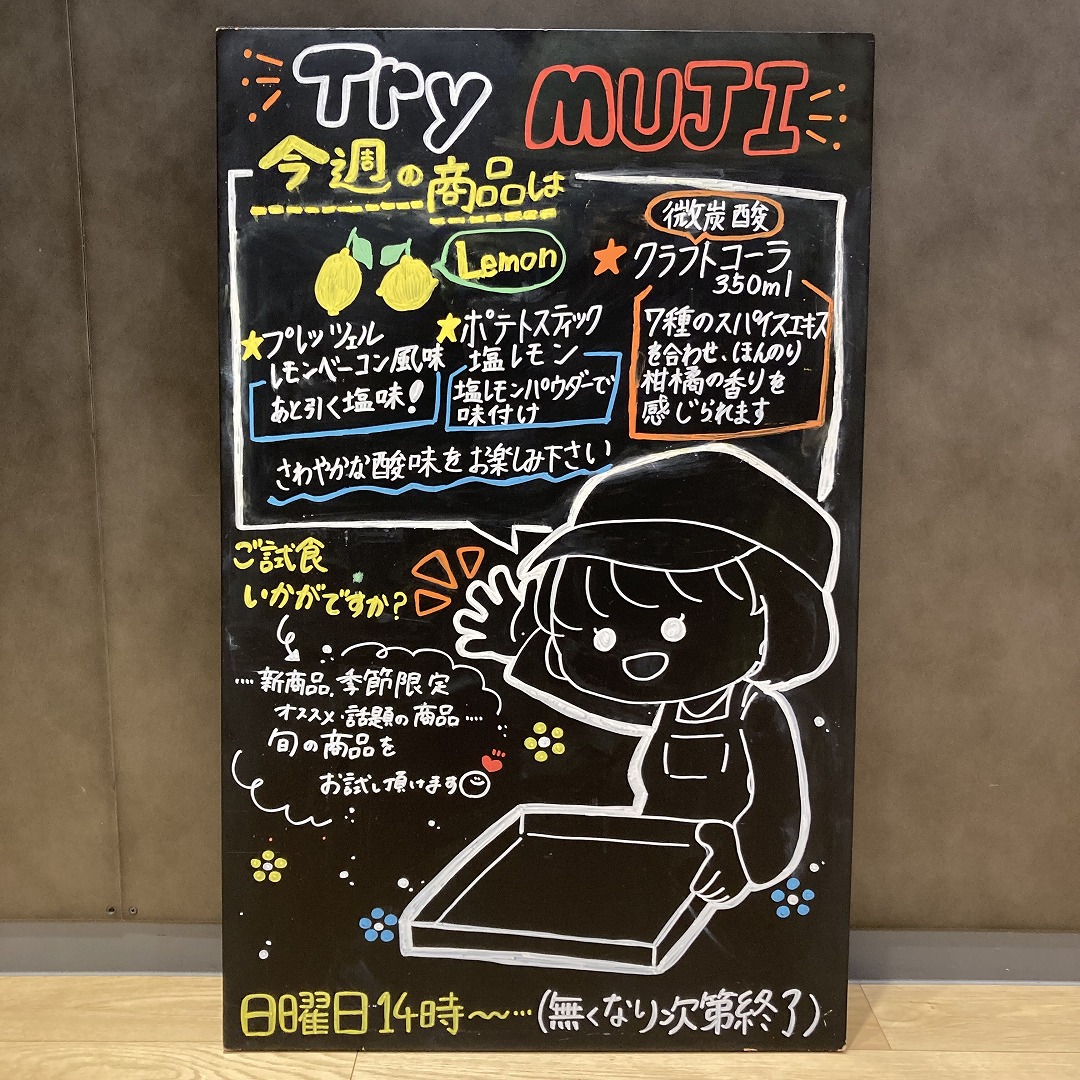 Try MUJI
今週の商品は
Lemon
★プレッツェル
レモンベーコン風味
あと引く塩味!
★ポテトスティック
塩レモン
塩レモンパウダーで
味付け
さわやかな酸味をお楽しみ下さい
微炭酸
★クラフトコーラ
350ml
7種のスパイスエキス
を合わせ、ほんのり
柑橘の香りを
感じられます
ご試食
いかがですか?
…新商品、季節限定
オススメ・話題の商品…
旬の商品を
お試し頂けます
日曜日14時〜…(無くなり次第終了)